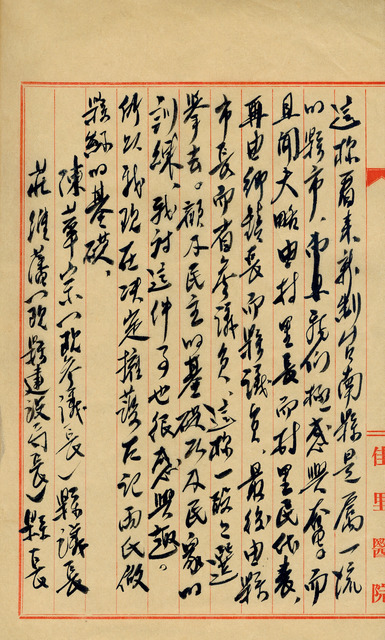 這樣看來新制台南縣是屬一流
的縣市,而且我們極感興奮。而
且聞大略由村里長而村里民代表,
再由鄉鎮長而縣議員,最後由縣
市長而省參議員,這樣一段々選
舉去。顧及民主的基礎以及民眾的
訓練,我對這件事也很感興趣。
所以我現在決定擁護左記兩氏做
縣的基礎,
陳華宗(現參議長)縣議長
莊維藩(現縣建設局長)縣長
佳里醫院